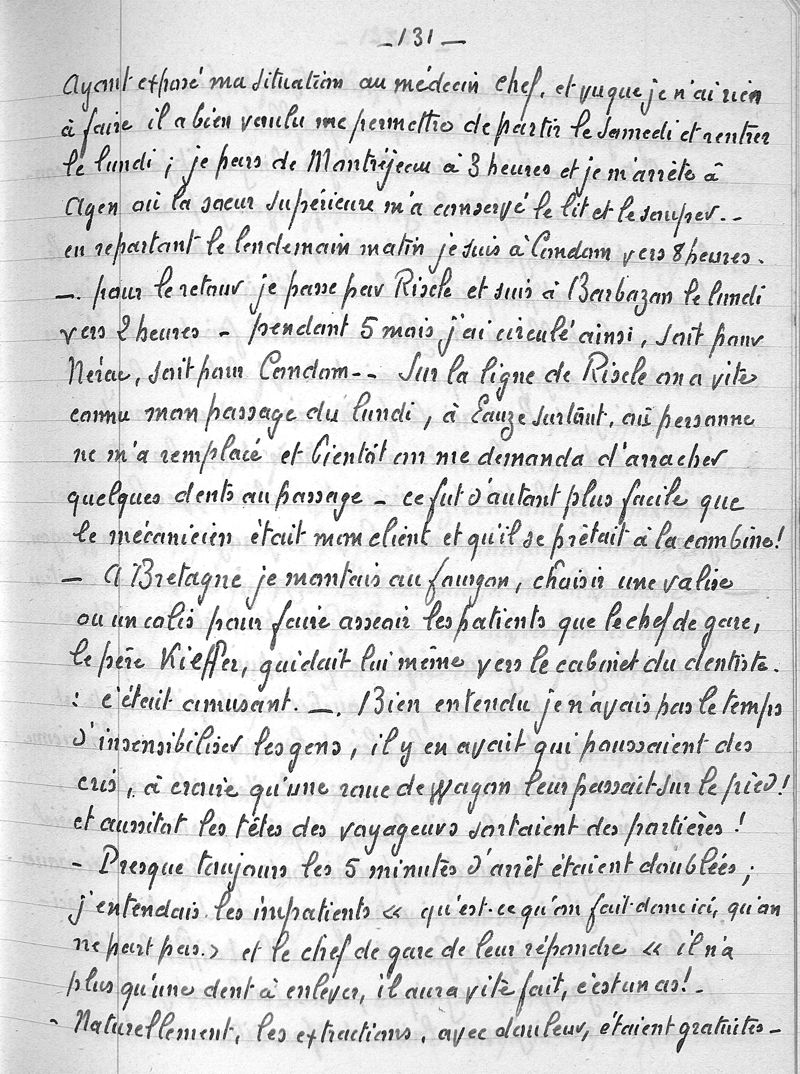 — 131 —
Ayant exposé ma situation au médecin chef, et vu que je n'ai rien
à faire il a bien voulu me permettre de partir le Samedi et rentrer
le lundi ; je pars de Montréjeau à 3 heures et je m'arrête à
Agen où la sœur supérieure m'a conservé le lit et le souper..
en repartant le lendemain matin je suis à Condom vers 8 heures.
—. pour le retour je passe par Riscle et suis à Barbazan le lundi
vers 2 heures – pendant 5 mois j'ai circulé ainsi, soit pour
Nérac, soit pour Condom-- Sur la ligne de Riscle on a vite
connu mon passage du lundi, à Eauze surtout, où personne
ne m'a remplacé et bientôt on me demanda d'arracher
quelques dents au passage – ce fut d'autant plus facile que
le mécanicien était mon client et qu'il se prêtait à la combine!
— A Bretagne je montais au fourgon, choisir une valise
ou un colis pour faire asseoir les patients que le chef de gare,
le père Kieffer, guidait lui même vers le cabinet du dentiste.
: c'était amusant. —. Bien entendu je n'avais pas le temps
d'insensibiliser les gens, il y en avait qui poussaient des
cris, à croire qu'une roue de wagon leur passait sur le pied!
et aussitot les têtes des voyageurs sortaient des portières !
- Presque toujours les 5 minutes d'arrêt étaient doublées ;
j'entendais les impatients « qu'est-ce qu'on fait donc ici, qu'on
ne part pas.> et le chef de gare de leur répondre « il n'a
plus qu'une dent à enlever, il aura vite fait, c'est un as! -
- Naturellement, les extractions, avec douleur, étaient gratuites –